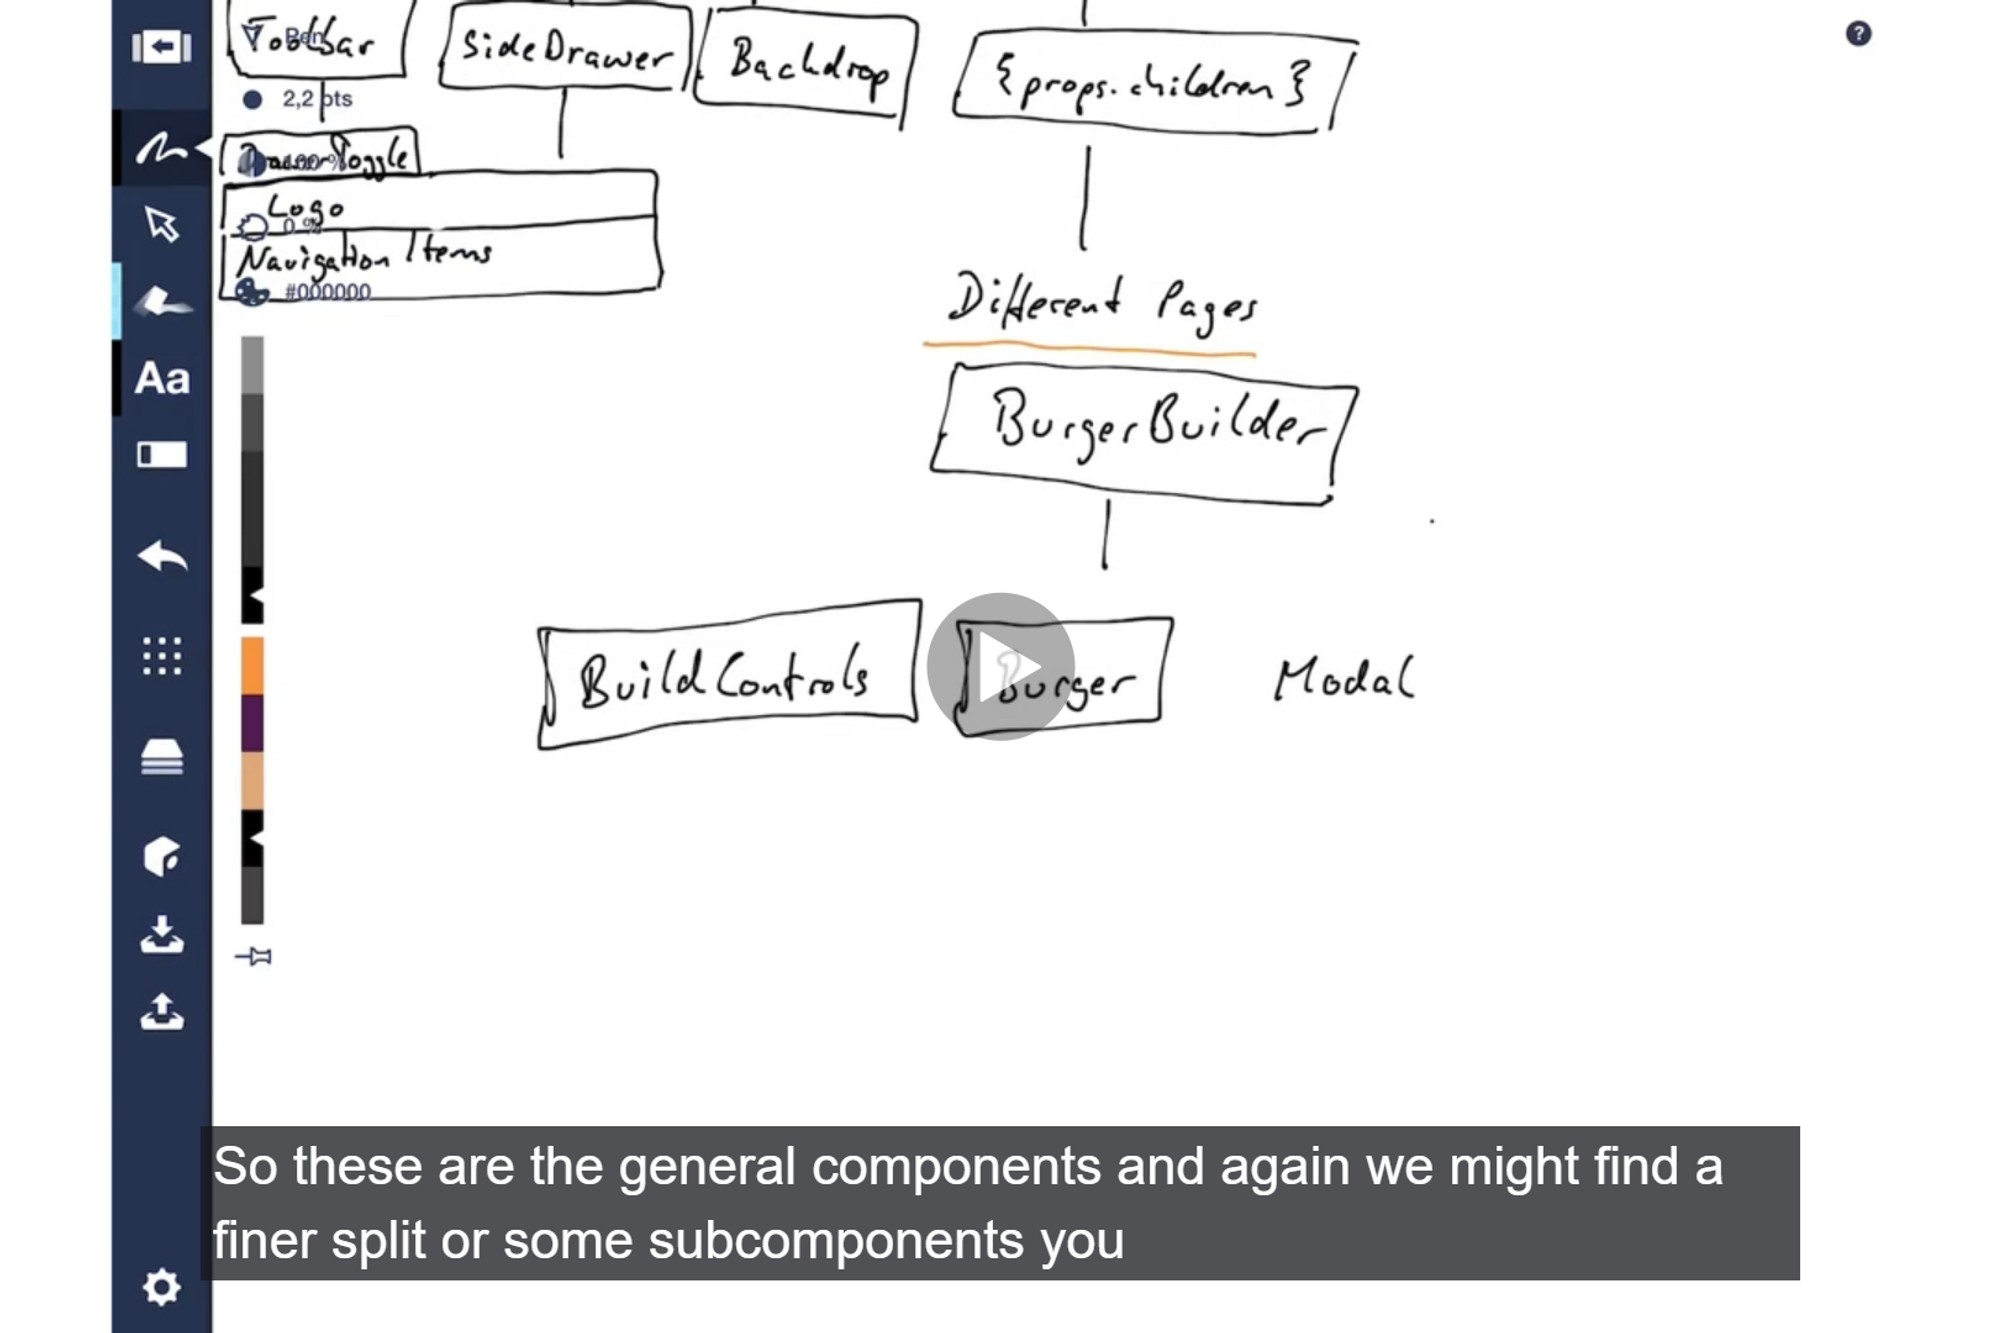 Toolbar
SideDrawer
Backdrop
{props.children}
Pen
2,2 pts
DrawerToggle
100 %
Logo
0 %
Navigation Items
#000000
Different Pages
BurgerBuilder
BuildControls
Burger
Modal
Aa
?
So these are the general components and again we might find a
finer split or some subcomponents you